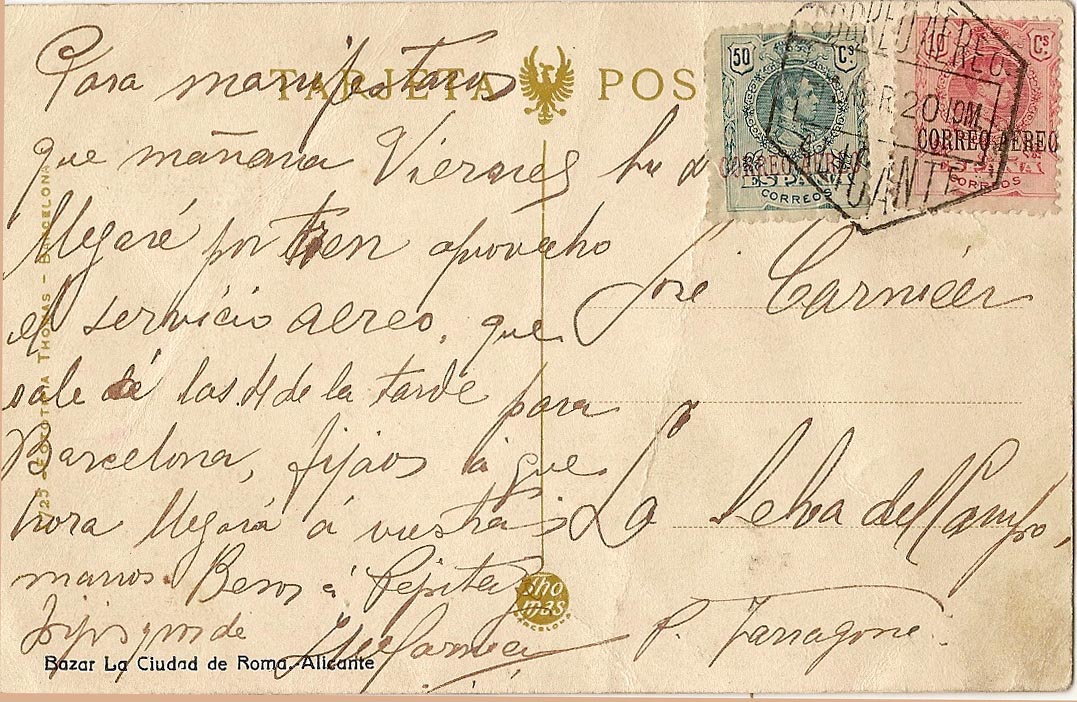 TARJETA POS
50 Cs
CORREO AEREO
ESPAÑA
CORREOS
CORREO AEREO
20 19M
ALICANTE
10 Cs
CORREO AEREO
CORREOS
Para manifestaros
que mañana Viernes
llegaré por tren aprovecho
el servicio aereo, que
sale de las 4 de la tarde para
Barcelona, fijaos á que
hora llegará á vuestras
manos. Besos á Pepita
de
José Carnicér
La Selva del Campo,
P. Tarragona.
725 - FOTOTIPIA THOMAS - BARCELONA
Thomas
BARCELONA
Bazar La Ciudad de Roma.-Alicante